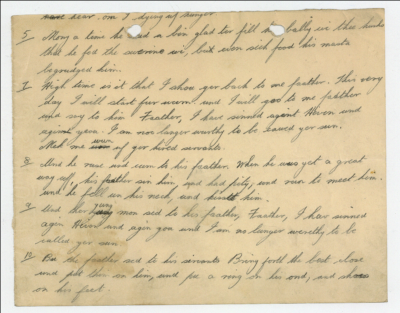 dear. on I dying uf hunger
5 Mony a teme he wad a bin glad ter fill his bally in thee husks
that he fed the swine wi, but even sich food his marta
begrudged him.
7 High teme is it that I shou ger back to me feather. This very
day I will start fur wum und I will goo to me feather
und sey to him Feather, I have sinned aginst Heven und
aginst yoou. I am nor langer worthy to be cared yor sun.
Mak me wun of yor hired servants.
8 Und he rose und wen to his feather. When he was yet a great
way off, his feather sin him, und had pity, und run to meet him.
und he fell on his neck, und kissth him.
9 Und ther yung mon sed to his feather, Feather, I hav sinned
agin Heven und agin you und I am no langer worthy to be
called yor sun.
10 But the feather sed to his servants Bring forth the best clooe
und put them on him, und put a ring on his ond, und shoes
on his feet.